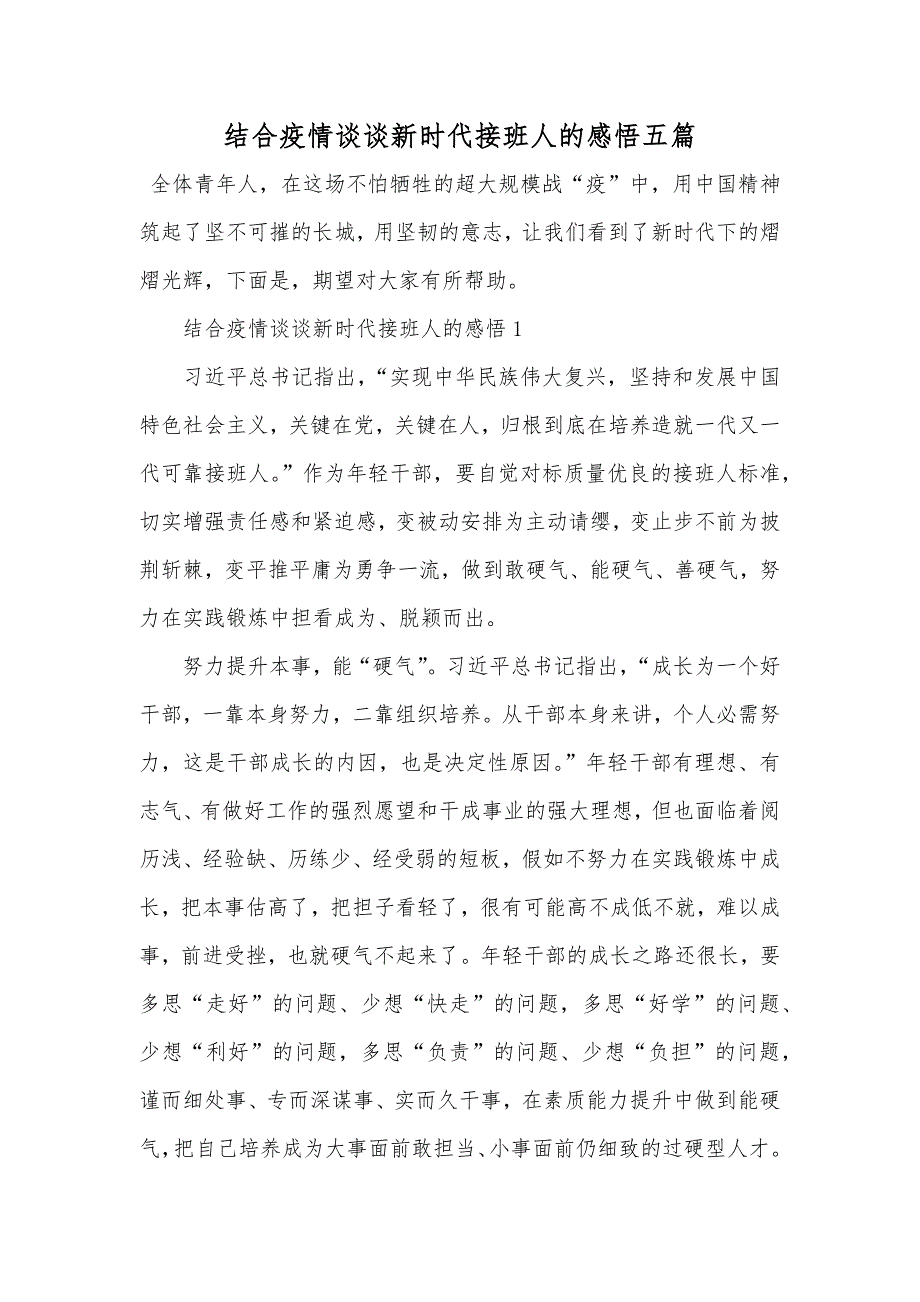 结合疫情谈谈新时代接班人的感悟五篇
全体青年人，在这场不怕牺牲的超大规模战“疫”中，用中国精神
筑起了坚不可摧的长城，用坚韧的意志，让我们看到了新时代下的熠
熠光辉，下面是，期望对大家有所帮助。
结合疫情谈谈新时代接班人的感悟 1
习近平总书记指出，“实现中华民族伟大复兴，坚持和发展中国
特色社会主义，关键在党，关键在人，归根到底在培养造就一代又一
代可靠接班人。”作为年轻干部，要自觉对标质量优良的接班人标准，
切实增强责任感和紧迫感，变被动安排为主动请缨，变止步不前为披
荆斩棘，变平推平庸为勇争一流，做到敢硬气、能硬气、善硬气，努
力在实践锻炼中担看成为、脱颖而出。
努力提升本事，能“硬气”。习近平总书记指出，“成长为一个好
干部，一靠本身努力，二靠组织培养。从干部本身来讲，个人必需努
力，这是干部成长的内因，也是决定性原因。”年轻干部有理想、有
志气、有做好工作的强烈愿望和干成事业的强大理想，但也面临着阅
历浅、经验缺、历练少、经受弱的短板，假如不努力在实践锻炼中成
长，把本事估高了，把担子看轻了，很有可能高不成低不就，难以成
事，前进受挫，也就硬气不起来了。年轻干部的成长之路还很长，要
多思“走好”的问题、少想“快走”的问题，多思“好学”的问题、
少想“利好”的问题，多思“负责”的问题、少想“负担”的问题，
谨而细处事、专而深谋事、实而久干事，在素质能力提升中做到能硬
气，把自己培养成为大事面前敢担当、小事面前仍细致的过硬型人才。